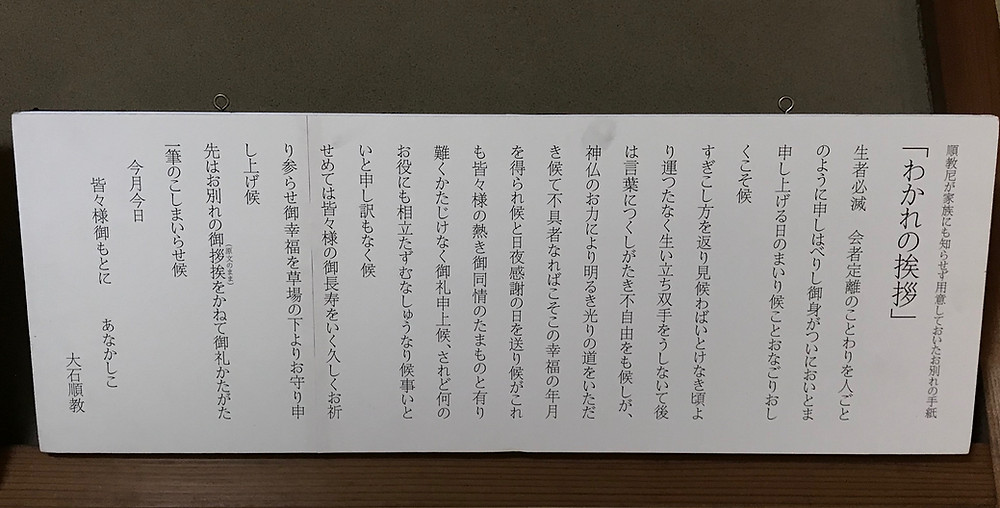 順教尼が家族にも知らせず用意しておいたお別れの手紙
「わかれの挨拶」
生者必滅　会者定離のことわりを人ごと
のように申しはべりし御身がついにおいとま
申し上げる日のまいり候ことおなごりおし
くこそ候
すぎこし方を返り見候わばいとけなき頃よ
り運つたなく生い立ち双手をうしないて後
は言葉につくしがたき不自由をも候しが、
神仏のお力により明るき光りの道をいただ
き候て不具者なればこそこの幸福の年月
を得られ候と日夜感謝の日を送り候がこれ
も皆々様の熱き御同情のたまものと有り
難くかたじけなく御礼申上候、されど何の
お役にも相立たずむなしゅうなり候事いと
いと申し訳もなく候
せめては皆々様の御長寿をいく久しくお祈
り参らせ御幸福を草場の下よりお守り申
し上げ候
先はお別れの御挨挨（原文のまま）をかねて御礼かたがた
一筆のこしまいらせ候
今月今日
皆々様御もとに　あなかしこ
大石順教